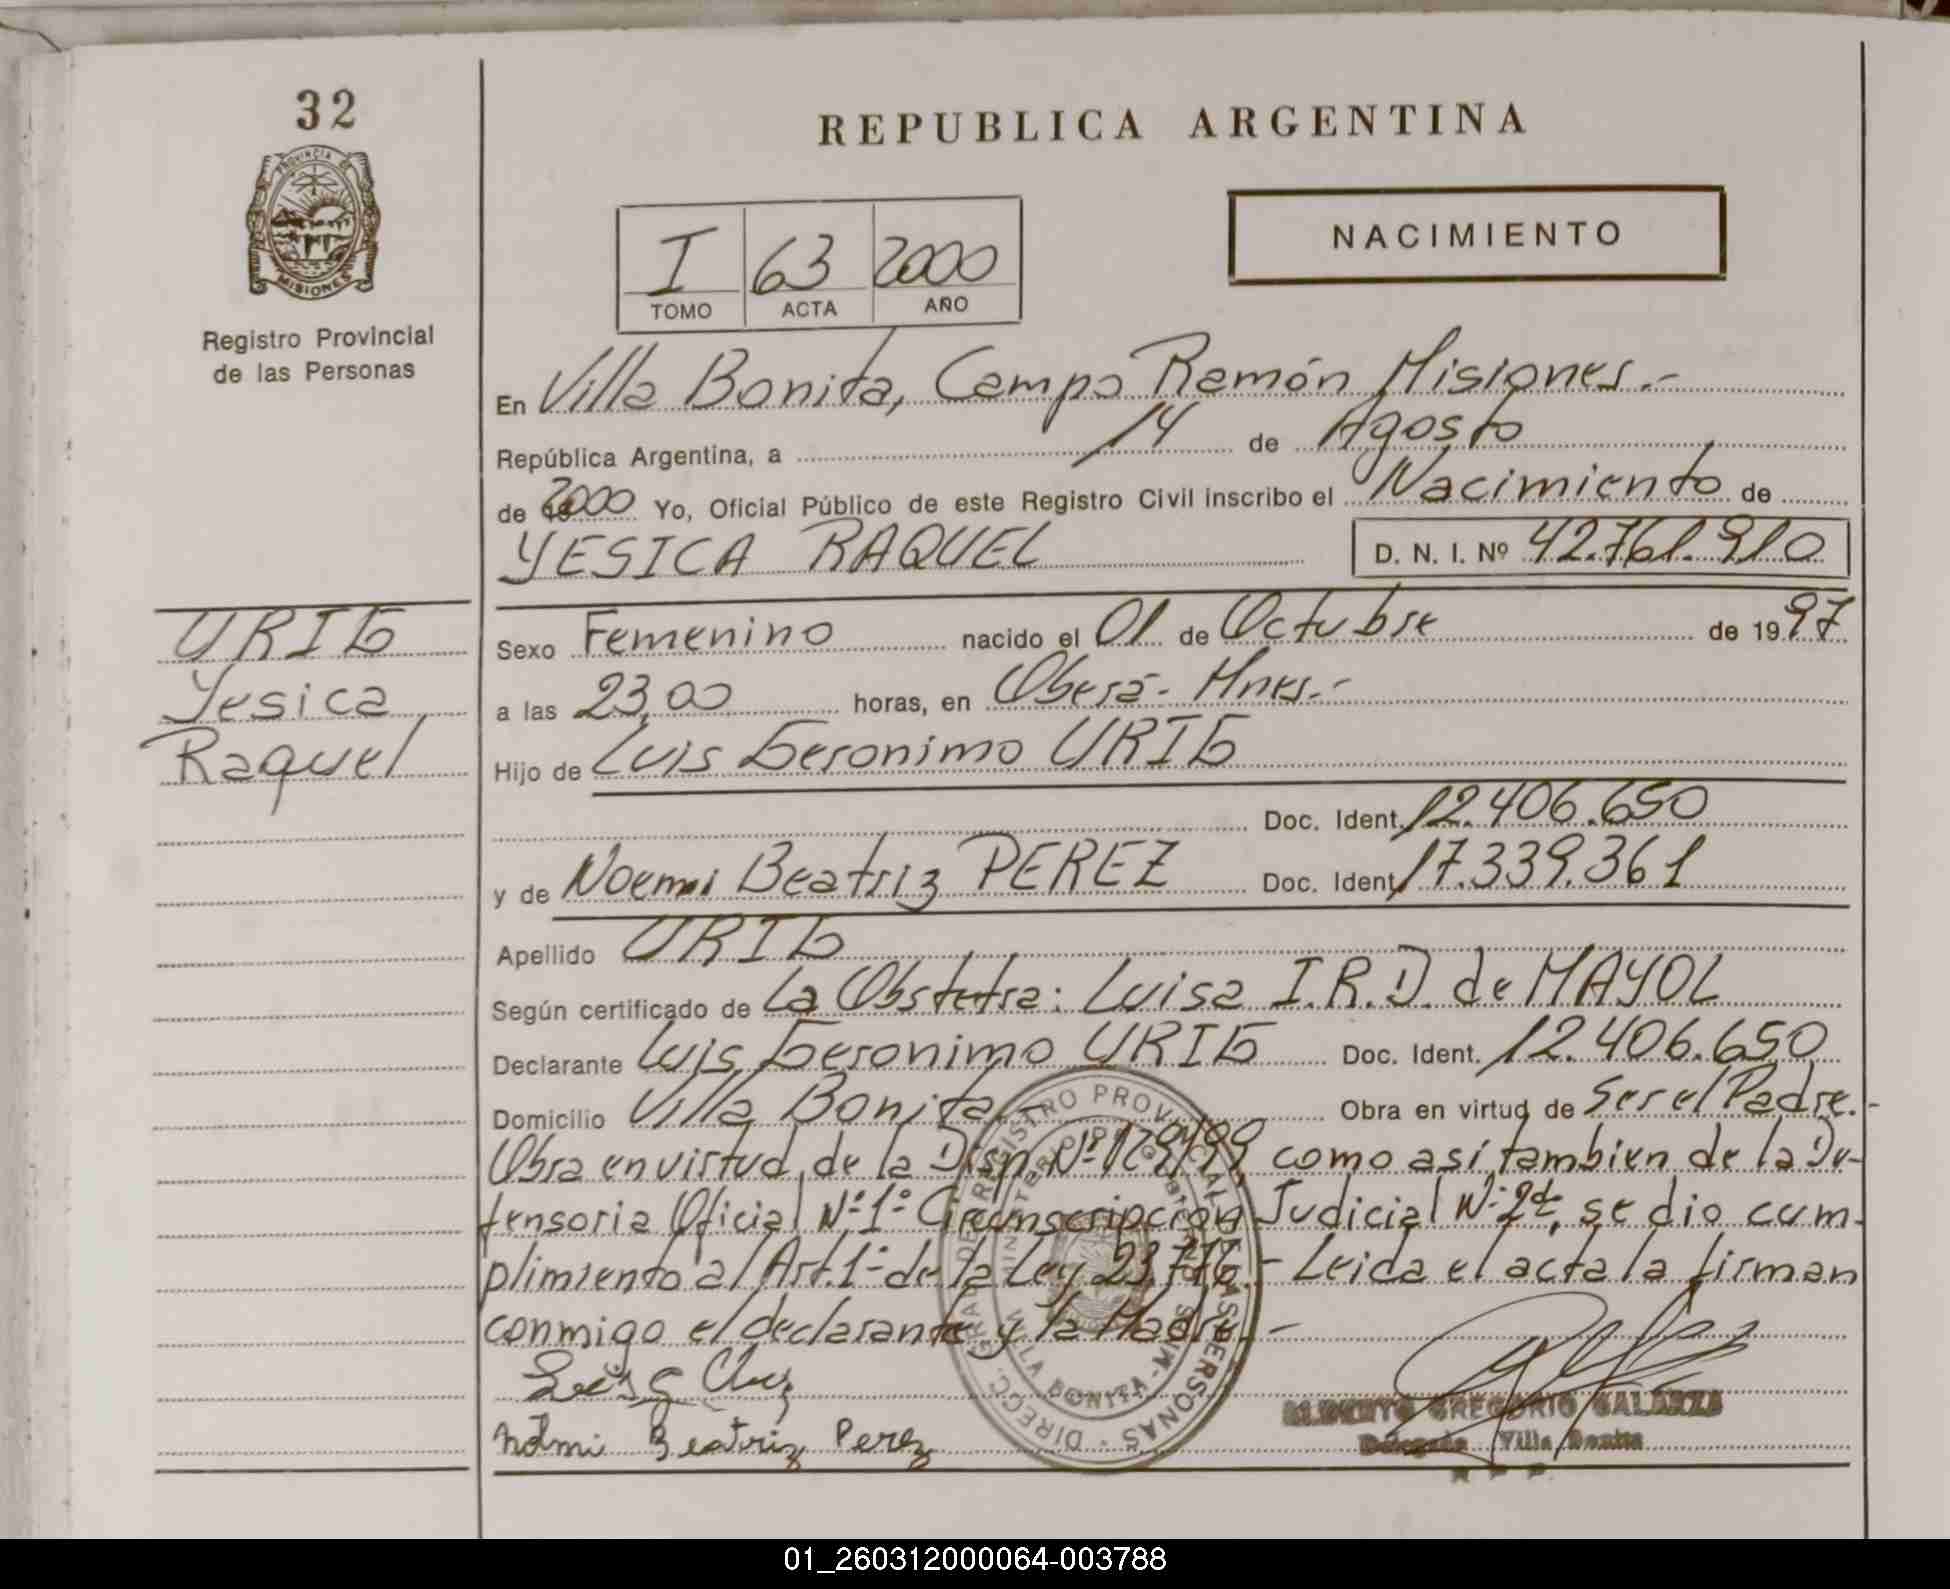 32
REPUBLICA ARGENTINA
PROVINCIA DE
MISIONES
Registro Provincial
de las Personas
NACIMIENTO
I 63 2000
TOMO ACTA AÑO
En Villa Bonita, Campo Ramón Misiones.-
República Argentina, a 14 de Agosto
de 2000 Yo, Oficial Público de este Registro Civil inscribo el Nacimiento de
YESICA RAQUEL D. N. I. Nº 42.761.910
URIG
Yesica
Raquel
Sexo Femenino nacido el 01 de Octubre de 1997
a las 23,00 horas, en Oberá- Mnes.-
Hijo de Luis Geronimo URIG
Doc. Ident. 12.406.650
y de Noemi Beatriz PEREZ Doc. Ident. 17.339.361
Apellido URIG
Según certificado de La Obstetra: Luisa I.R.D. de MAYOL
Declarante Luis Geronimo URIG Doc. Ident. 12.406.650
Domicilio Villa Bonita Obra en virtud de Ser el Padre.-
Obra en virtud de la Disp. Nº 129/99, como así tambien de la De-
fensoria Oficial Nº 1º Circunscripción Judicial Nº 2da, se dio cum-
plimiento al Art. 1º de la Ley 23.776.- Leida el acta la firman
conmigo el declarante y la Madre.-
Noemi Beatriz Perez
ALBERTO GREGORIO GALARZA
Delegado Villa Bonita
DIRECC. GRAL. DE REGISTRO PROVINCIAL DE LAS PERSONAS
VILLA BONITA - MNES
01_260312000064-003788